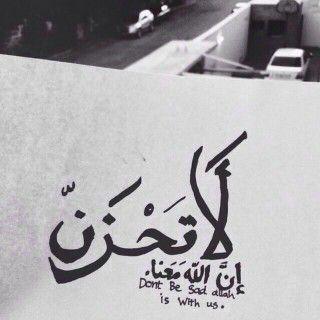 لَا تَحْزَنّ
إِنَّ اللَّهَ مَعَنا.
Dont Be Sad allah
is With us.